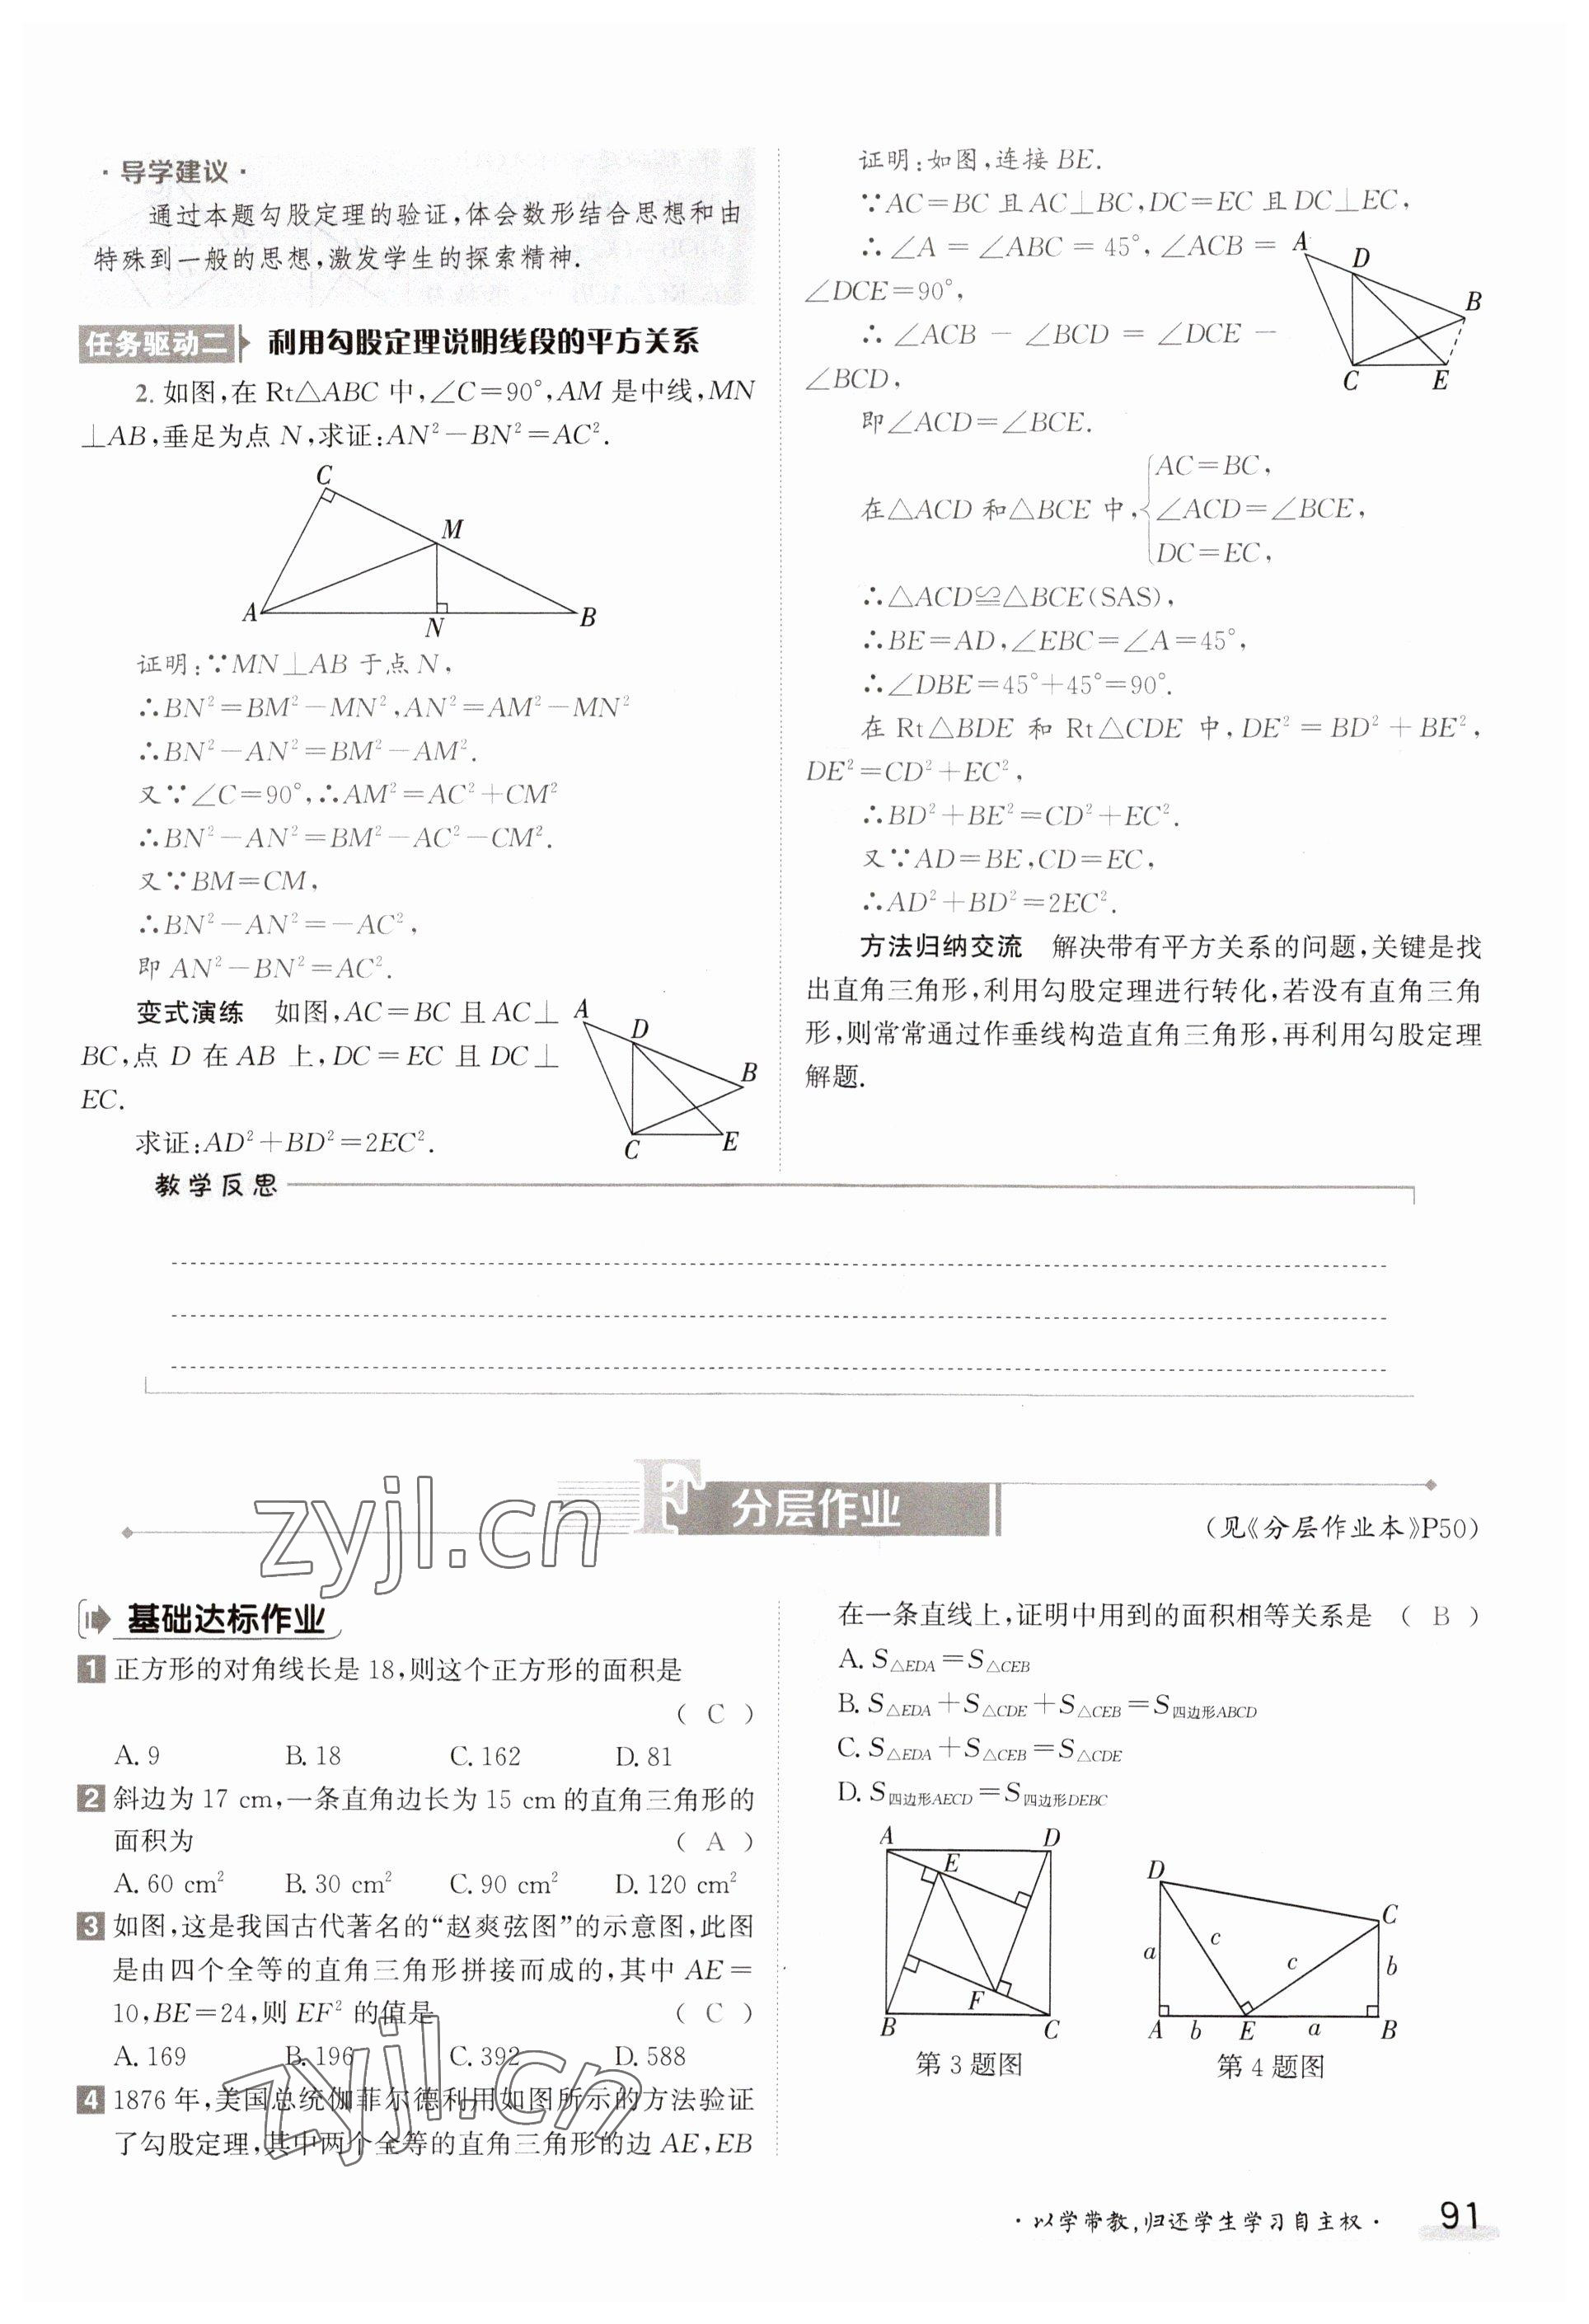 · 导学建议 ·
通过本题勾股定理的验证,体会数形结合思想和由
特殊到一般的思想,激发学生的探索精神.
任务驱动二 利用勾股定理说明线段的平方关系
2. 如图,在 Rt△ABC 中,∠C=90°,AM 是中线,MN
⊥AB,垂足为点 N,求证:AN²-BN²=AC².
C
M
A
N
B
证明:∵MN⊥AB 于点 N,
∴BN²=BM²-MN²,AN²=AM²-MN²
∴BN²-AN²=BM²-AM².
又∵∠C=90°,∴AM²=AC²+CM²
∴BN²-AN²=BM²-AC²-CM².
又∵BM=CM,
∴BN²-AN²=-AC²,
即 AN²-BN²=AC².
变式演练 如图,AC=BC 且 AC⊥
BC,点 D 在 AB 上,DC=EC 且 DC⊥
EC.
求证:AD²+BD²=2EC².
A
D
B
C
E
证明:如图,连接 BE.
∵AC=BC 且 AC⊥BC,DC=EC 且 DC⊥EC,
∴∠A=∠ABC=45°,∠ACB=
∠DCE=90°,
∴∠ACB-∠BCD=∠DCE-
∠BCD,
即∠ACD=∠BCE.
A
D
B
C
E
AC=BC,
在△ACD 和△BCE 中,{∠ACD=∠BCE,
DC=EC,
∴△ACD≌△BCE(SAS),
∴BE=AD,∠EBC=∠A=45°,
∴∠DBE=45°+45°=90°.
在 Rt△BDE 和 Rt△CDE 中,DE²=BD²+BE²,
DE²=CD²+EC²,
∴BD²+BE²=CD²+EC².
又∵AD=BE,CD=EC,
∴AD²+BD²=2EC².
方法归纳交流 解决带有平方关系的问题,关键是找
出直角三角形,利用勾股定理进行转化,若没有直角三角
形,则常常通过作垂线构造直角三角形,再利用勾股定理
解题.
教学反思
F 分层作业
(见《分层作业本》P50)
zyjl.cn
基础达标作业
1 正方形的对角线长是 18,则这个正方形的面积是
( C )
A. 9 B. 18 C. 162 D. 81
2 斜边为 17 cm,一条直角边长为 15 cm 的直角三角形的
面积为 ( A )
A. 60 cm² B. 30 cm² C. 90 cm² D. 120 cm²
3 如图,这是我国古代著名的“赵爽弦图”的示意图,此图
是由四个全等的直角三角形拼接而成的,其中 AE=
10,BE=24,则 EF² 的值是 ( C )
A. 169 B. 196 C. 392 D. 588
4 1876 年,美国总统伽菲尔德利用如图所示的方法验证
了勾股定理,其中两个全等的直角三角形的边 AE,EB
zyjl.cn
在一条直线上,证明中用到的面积相等关系是 ( B )
A. S△EDA=S△CEB
B. S△EDA+S△CDE+S△CEB=S四边形ABCD
C. S△EDA+S△CEB=S△CDE
D. S四边形AECD=S四边形DEBC
A
D
E
F
B
C
第 3 题图
D
C
a
c
c
b
A
b
E
a
B
第 4 题图
· 以学带教,归还学生学习自主权 ·
91